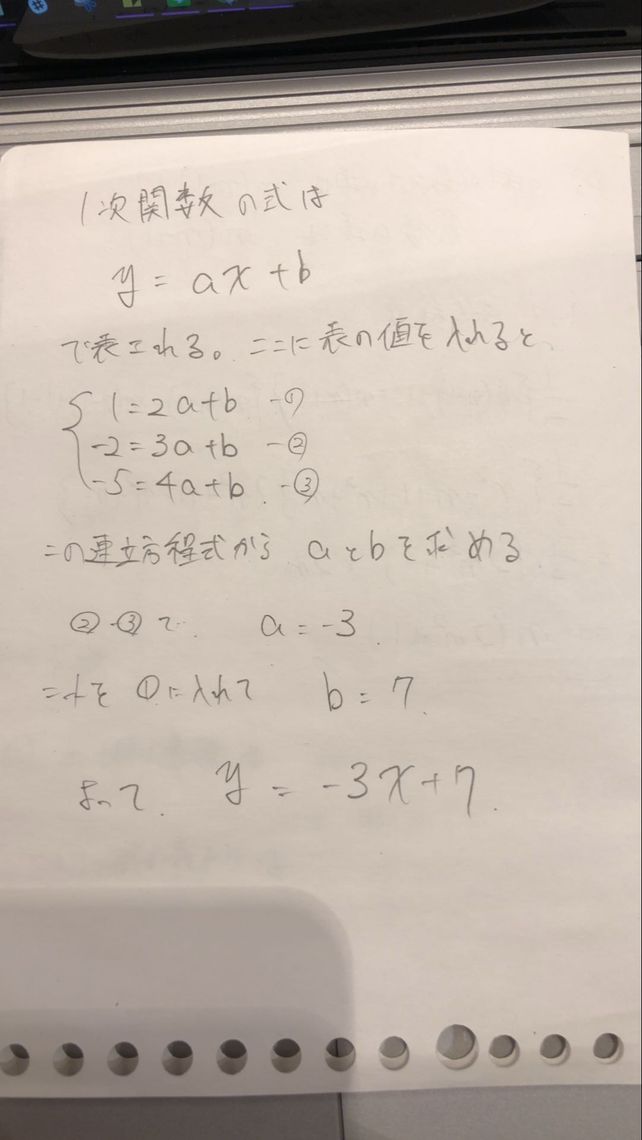 1次関数の式は
y = ax + b
で表される。ここに表の値を入れると、
1 = 2a + b -①
-2 = 3a + b -②
-5 = 4a + b -③
この連立方程式から aとbを求める
②-③で. a = -3.
これを①に入れて b = 7.
よって. y = -3x + 7.